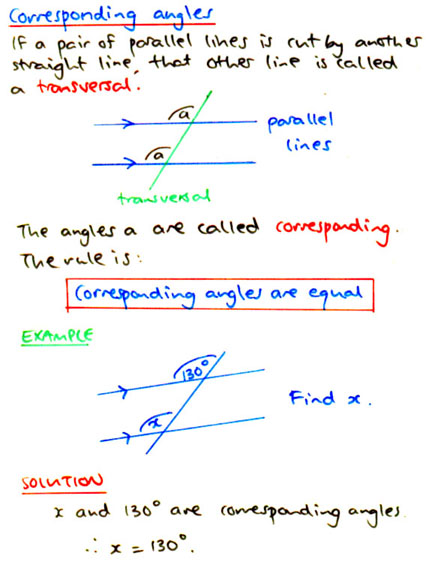 Corresponding angles
If a pair of parallel lines is cut by another
straight line, that other line is called
a transversal.
a
parallel
a
lines
transversal
The angles a are called corresponding.
The rule is:
Corresponding angles are equal
EXAMPLE
130°
Find x.
x
SOLUTION
x and 130° are corresponding angles.
∴ x = 130°.